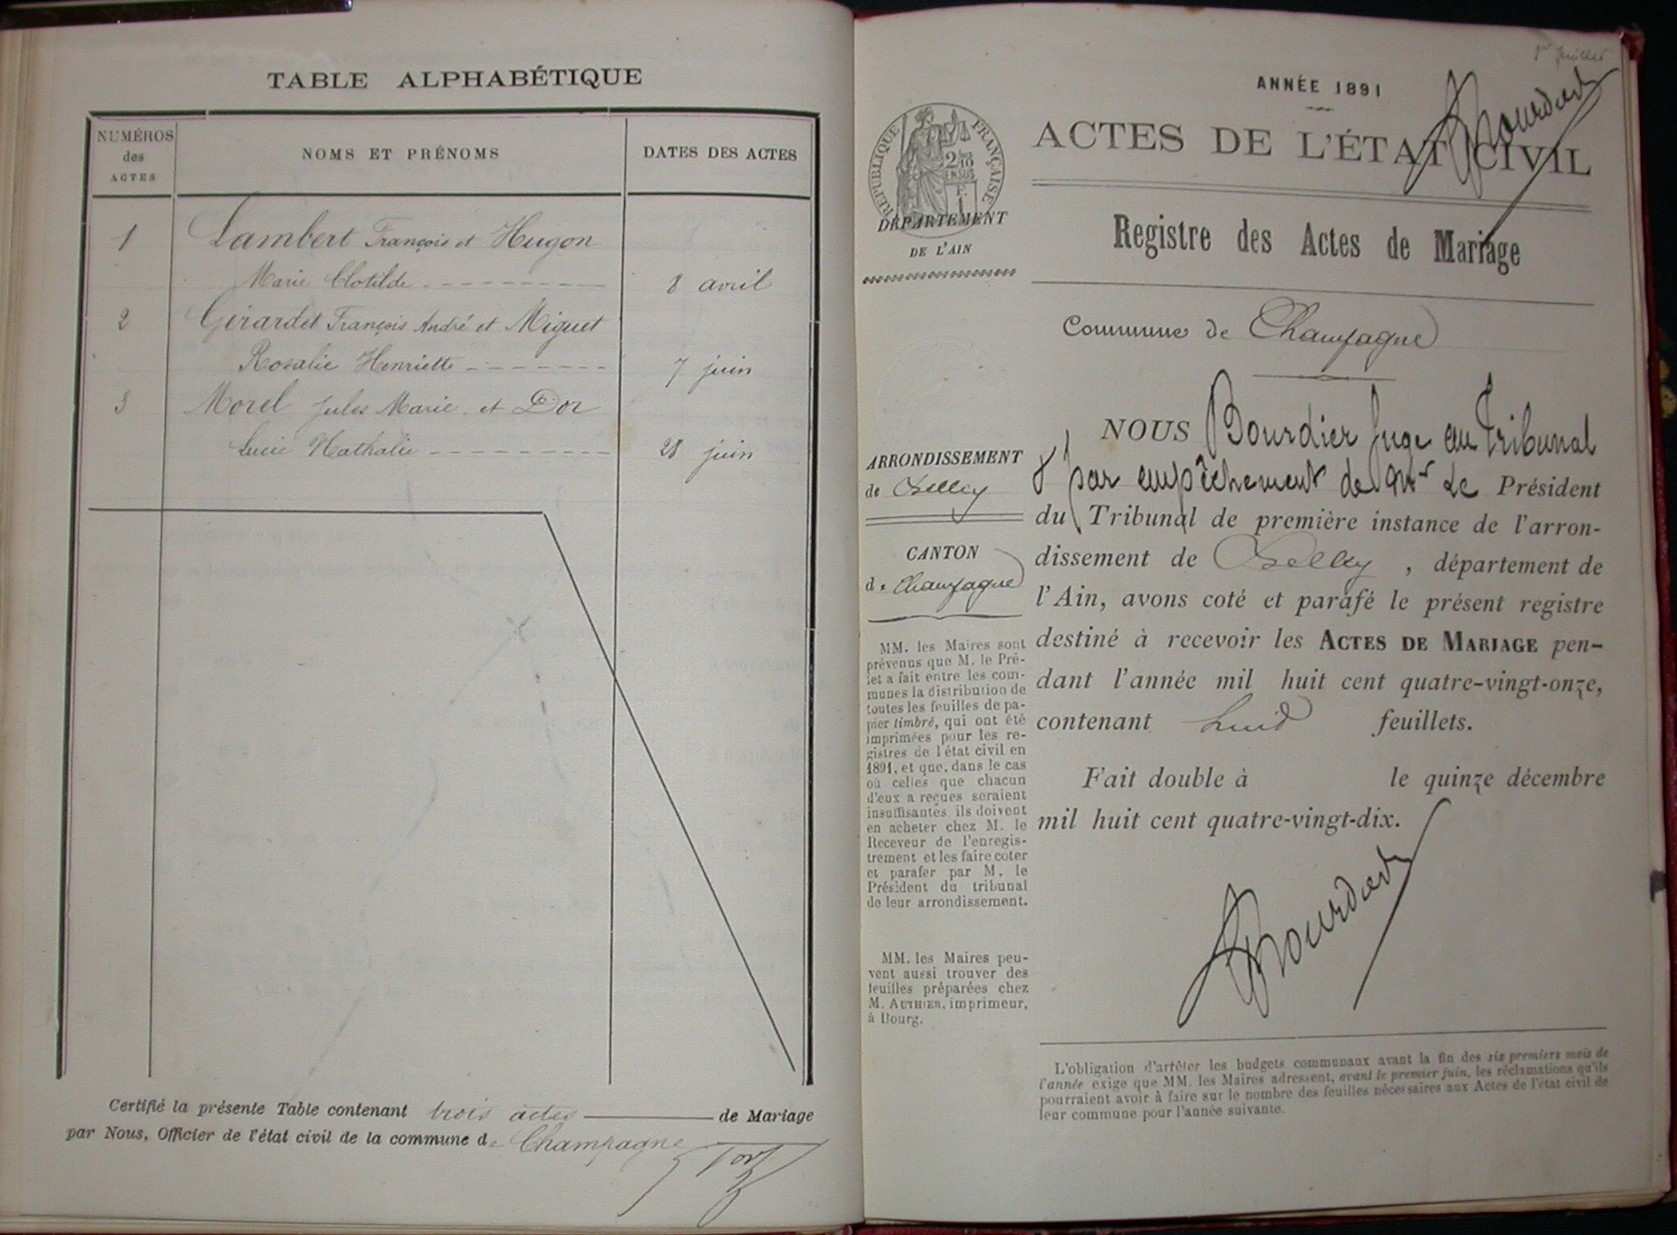 TABLE ALPHABÉTIQUE
NUMÉROS
des
ACTES
NOMS ET PRÉNOMS
DATES DES ACTES
1 Lambert François et Hugon
Marie Clotilde 8 avril
2 Girardet François André et Miguet
Rosalie Henriette 7 juin
3 Morel Jules Marie et Dor
Lucie Nathalie 28 juin
Certifié la présente Table contenant trois actes de Mariage
par Nous, Officier de l'état civil de la commune de Champagne
1er Juillet
ANNÉE 1891
ACTES DE L'ÉTAT CIVIL
RÉPUBLIQUE FRANÇAISE
DÉPARTEMENT
DE L'AIN
Registre des Actes de Mariage
Commune de Champagne
ARRONDISSEMENT
de Belley
CANTON
de Champagne
MM. les Maires sont
prévenus que M. le Pré-
fet a fait entre les com-
munes la distribution de
toutes les feuilles de pa-
pier timbré, qui ont été
imprimées pour les re-
gistres de l'état civil en
1891, et que, dans le cas
où celles que chacun
d'eux a reçues seraient
insuffisantes, ils doivent
en acheter chez M. le
Receveur de l'enregis-
trement et les faire coter
et parafer par M. le
Président du tribunal
de leur arrondissement.
MM. les Maires peu-
vent aussi trouver des
feuilles préparées chez
M. AUTHIER, imprimeur,
à Bourg.
NOUS Bourdier Juge au Tribunal
par empêchement de Mr Le Président
du Tribunal de première instance de l'arron-
dissement de Belley, département de
l'Ain, avons coté et parafé le présent registre
destiné à recevoir les ACTES DE MARIAGE pen-
dant l'année mil huit cent quatre-vingt-onze,
contenant huit feuillets.
Fait double à le quinze décembre
mil huit cent quatre-vingt-dix.
L'obligation d'arrêter les budgets communaux avant la fin des six premiers mois de
l'année exige que MM. les Maires adressent, avant le premier juin, les réclamations qu'ils
pourraient avoir à faire sur le nombre des feuilles nécessaires aux Actes de l'état civil de
leur commune pour l'année suivante.